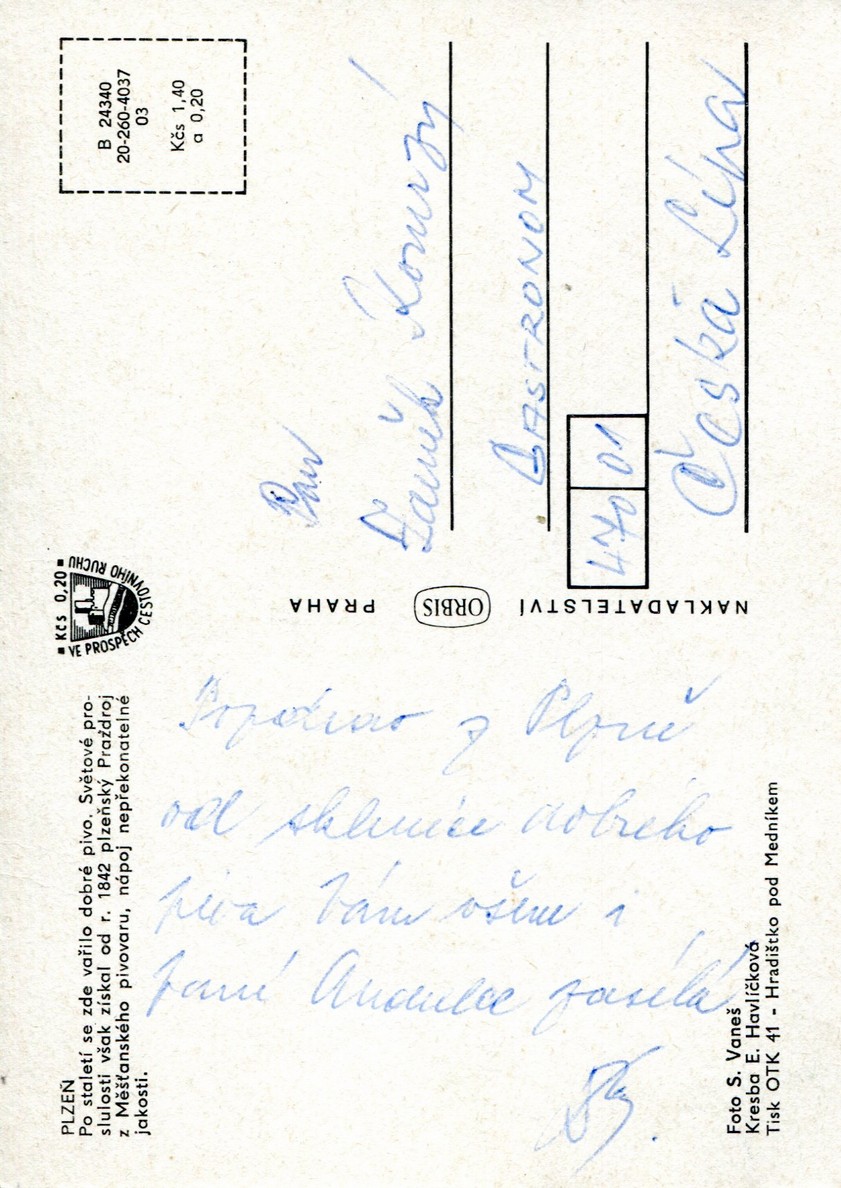 PLZEŇ
Po staletí se zde vařilo dobré pivo. Světové pro-
slulosti však získal od r. 1842 plzeňský Prazdroj
z Měšťanského pivovaru, nápoj nepřekonatelné
jakosti.
Pozdrav z Plzně
od sklenice dobrého
piva Vám všem i
paní Andulce zasílá
Foto S. Vaneš
Kresba E. Havlíčková
Tisk OTK 41 - Hradištko pod Medníkem
Kčs 0,20
VE PROSPĚCH CESTOVNÍHO RUCHU
NAKLADATELSTVÍ ORBIS PRAHA
B 24340
20-260-4037
03
Kčs 1,40
a 0,20
Pan
470 01
Česká Lípa